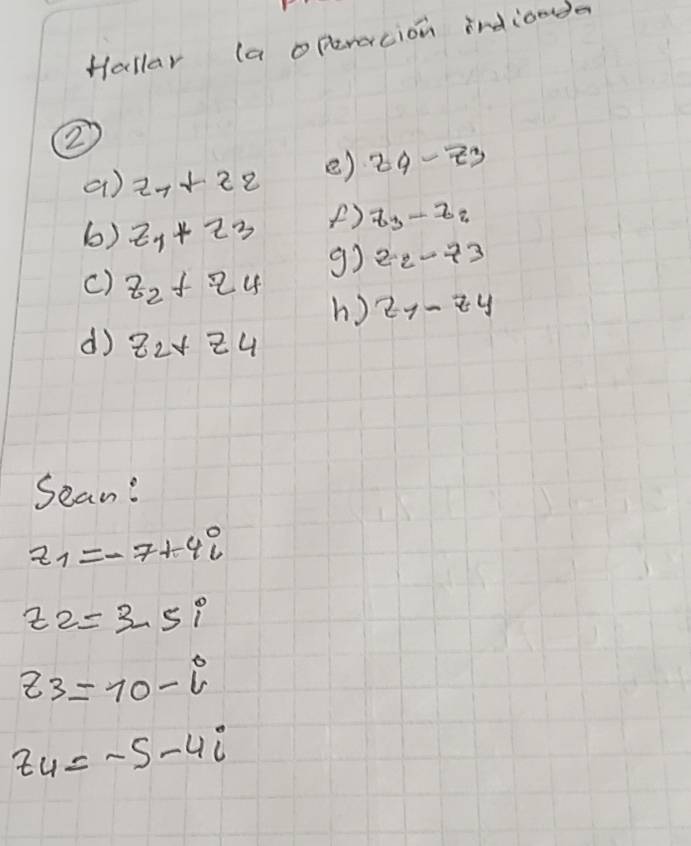 Hallar la operación indicada
②
a) z1 + z2
b) z1 + z3
c) z2 + z4
d) z2 + z4
e) z4 - z3
f) z3 - z2
g) z2 - z3
h) z1 - z4
Sean:
z1 = -7+4i
z2 = 3-5i
z3 = 10-i
z4 = -5-4i